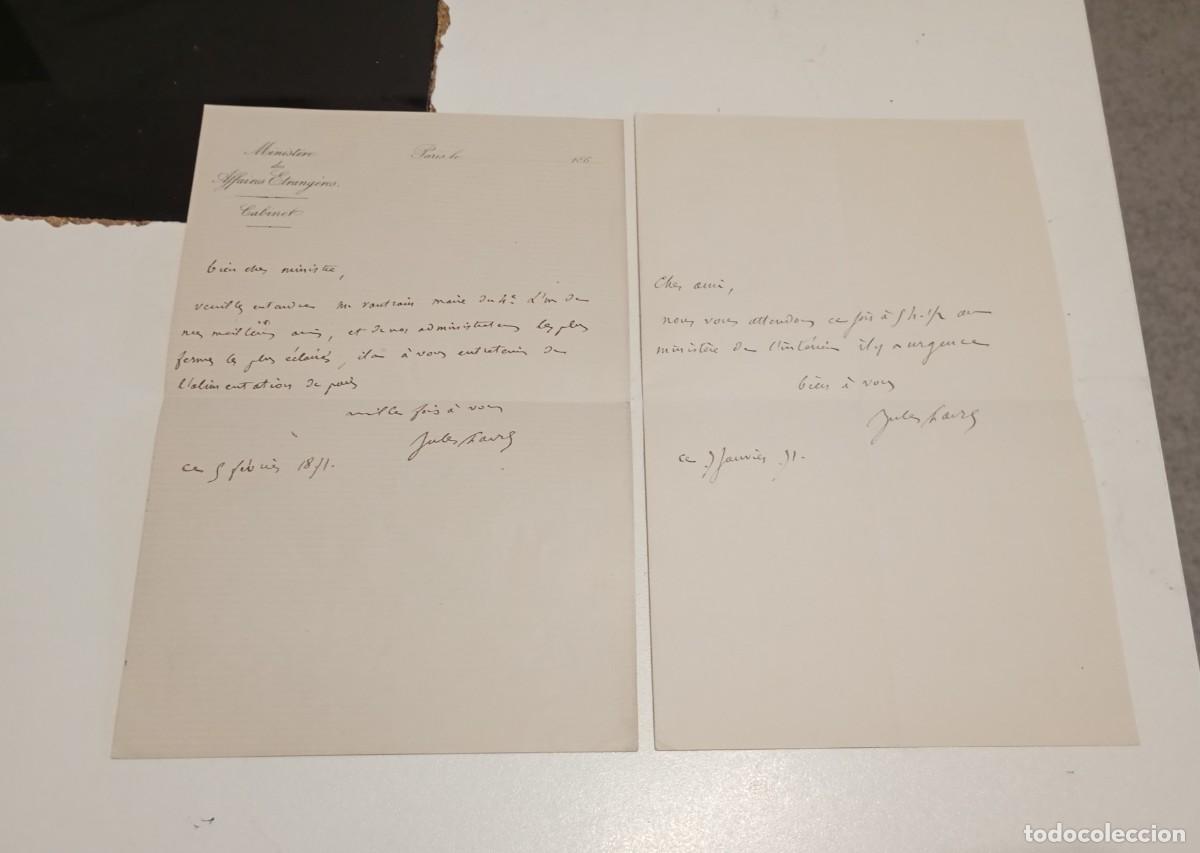 Ministère
des
Affaires Etrangères.
Cabinet
Paris, le 186
bien cher ministre,
veuillez entendre M. Vautrain maire du 4e. L'un de
nos meilleurs amis, et de nos administrateurs les plus
fermes les plus éclairés, il a à vous entretenir de
l'alimentation de paris
mille fois à vous
Jules Favre
ce 5 février 1871.
Cher ami,
nous vous attendons ce soir à 5 h. 1/2 au
ministère de l'intérieur il y a urgence
bien à vous
Jules Favre
ce janvier 71.
todocoleccion